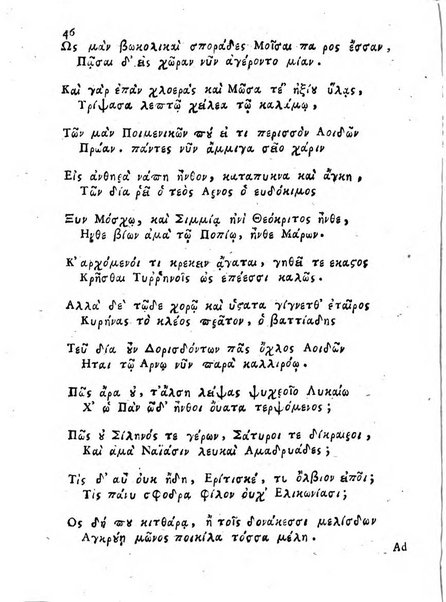 46
Ως μὰν βωκολικαὶ σποράδες Μοῖσαι πα ρος ἔσσαν,
Πᾶσαι δ' εἰς χῶραν νῦν ἀγέροντο μίαν.
Καὶ γὰρ ἐπὰν χλοερὰς καὶ Μῶσα τε ἠξίου ὕλας,
Τρίψασα λεπτῶ χείλεα τῶ καλάμω,
Τῶν μὰν Ποιμενικῶν που εἰ τι περισσὸν Αοιδῶν
Πρώαν. πάντες νῦν ἄμμιγα σεῖο χάριν
Εἰς ἀνθηρὰ νάπη ἦνθον, καταπυκνα καὶ ἄγκη,
Τῶν δία ῥεῖ ὁ τεὸς Αρνος ὁ ευδόκιμος
Ξυν Μόσχῳ, καὶ Σιμμίᾳ ἠνὶ Θεόκριτος ἦνθε,
Ηνθε βίων ἁμα τῶ Ποπίῳ, ἦνθε Μάρων.
Κ' αρχόμενοι τι κρεκεν ἄγαται, γηθεῖ τε εκαςος
Κρῆσθαι Τυρρηνοῖς ὡς ἐπέεσσι καλῶς.
Αλλὰ δὲ τῶδε χορῶ καὶ ὕςατα γίγνετθ' ἑταῖρος
Κυρήνας τὸ κλέος πρᾶτον, ὁ βαττιάδης
Τεῦ δία ὖν Δορισδόντων πᾶς ὄχλος Αοιδῶν
Ηται τῶ Αρνω νῦν παρὰ καλλιρόω.
Πῶς ἄρα ὐ, τἄλση λείψας ψυχεῖο Λυκαίω
Χ' ὡ Πὰν ὧδ' ἦνθοι ούατα τερψόμενος;
Πῶς ὐ Σίληνός τε γέρων, Σάτυροι τε δίκραιροι,
Καὶ ἁμὰ Ναΐασιν λευκαὶ Αμαδρυάδες;
Τίς δ' αὖ οὐκ ἤδη, Εριτισκέ, τι ὄλβιον εἴποι;
Τὶς πάνυ σφοδρα φίλον ουχ' Ελικωνίασι;
Ος δή που κιτθάρᾳ, ἢ τοῖς δονάκεσσι μελίσδων
Αγκρύῃ μῶνος ποικίλα τόσσα μέλη.
Ad